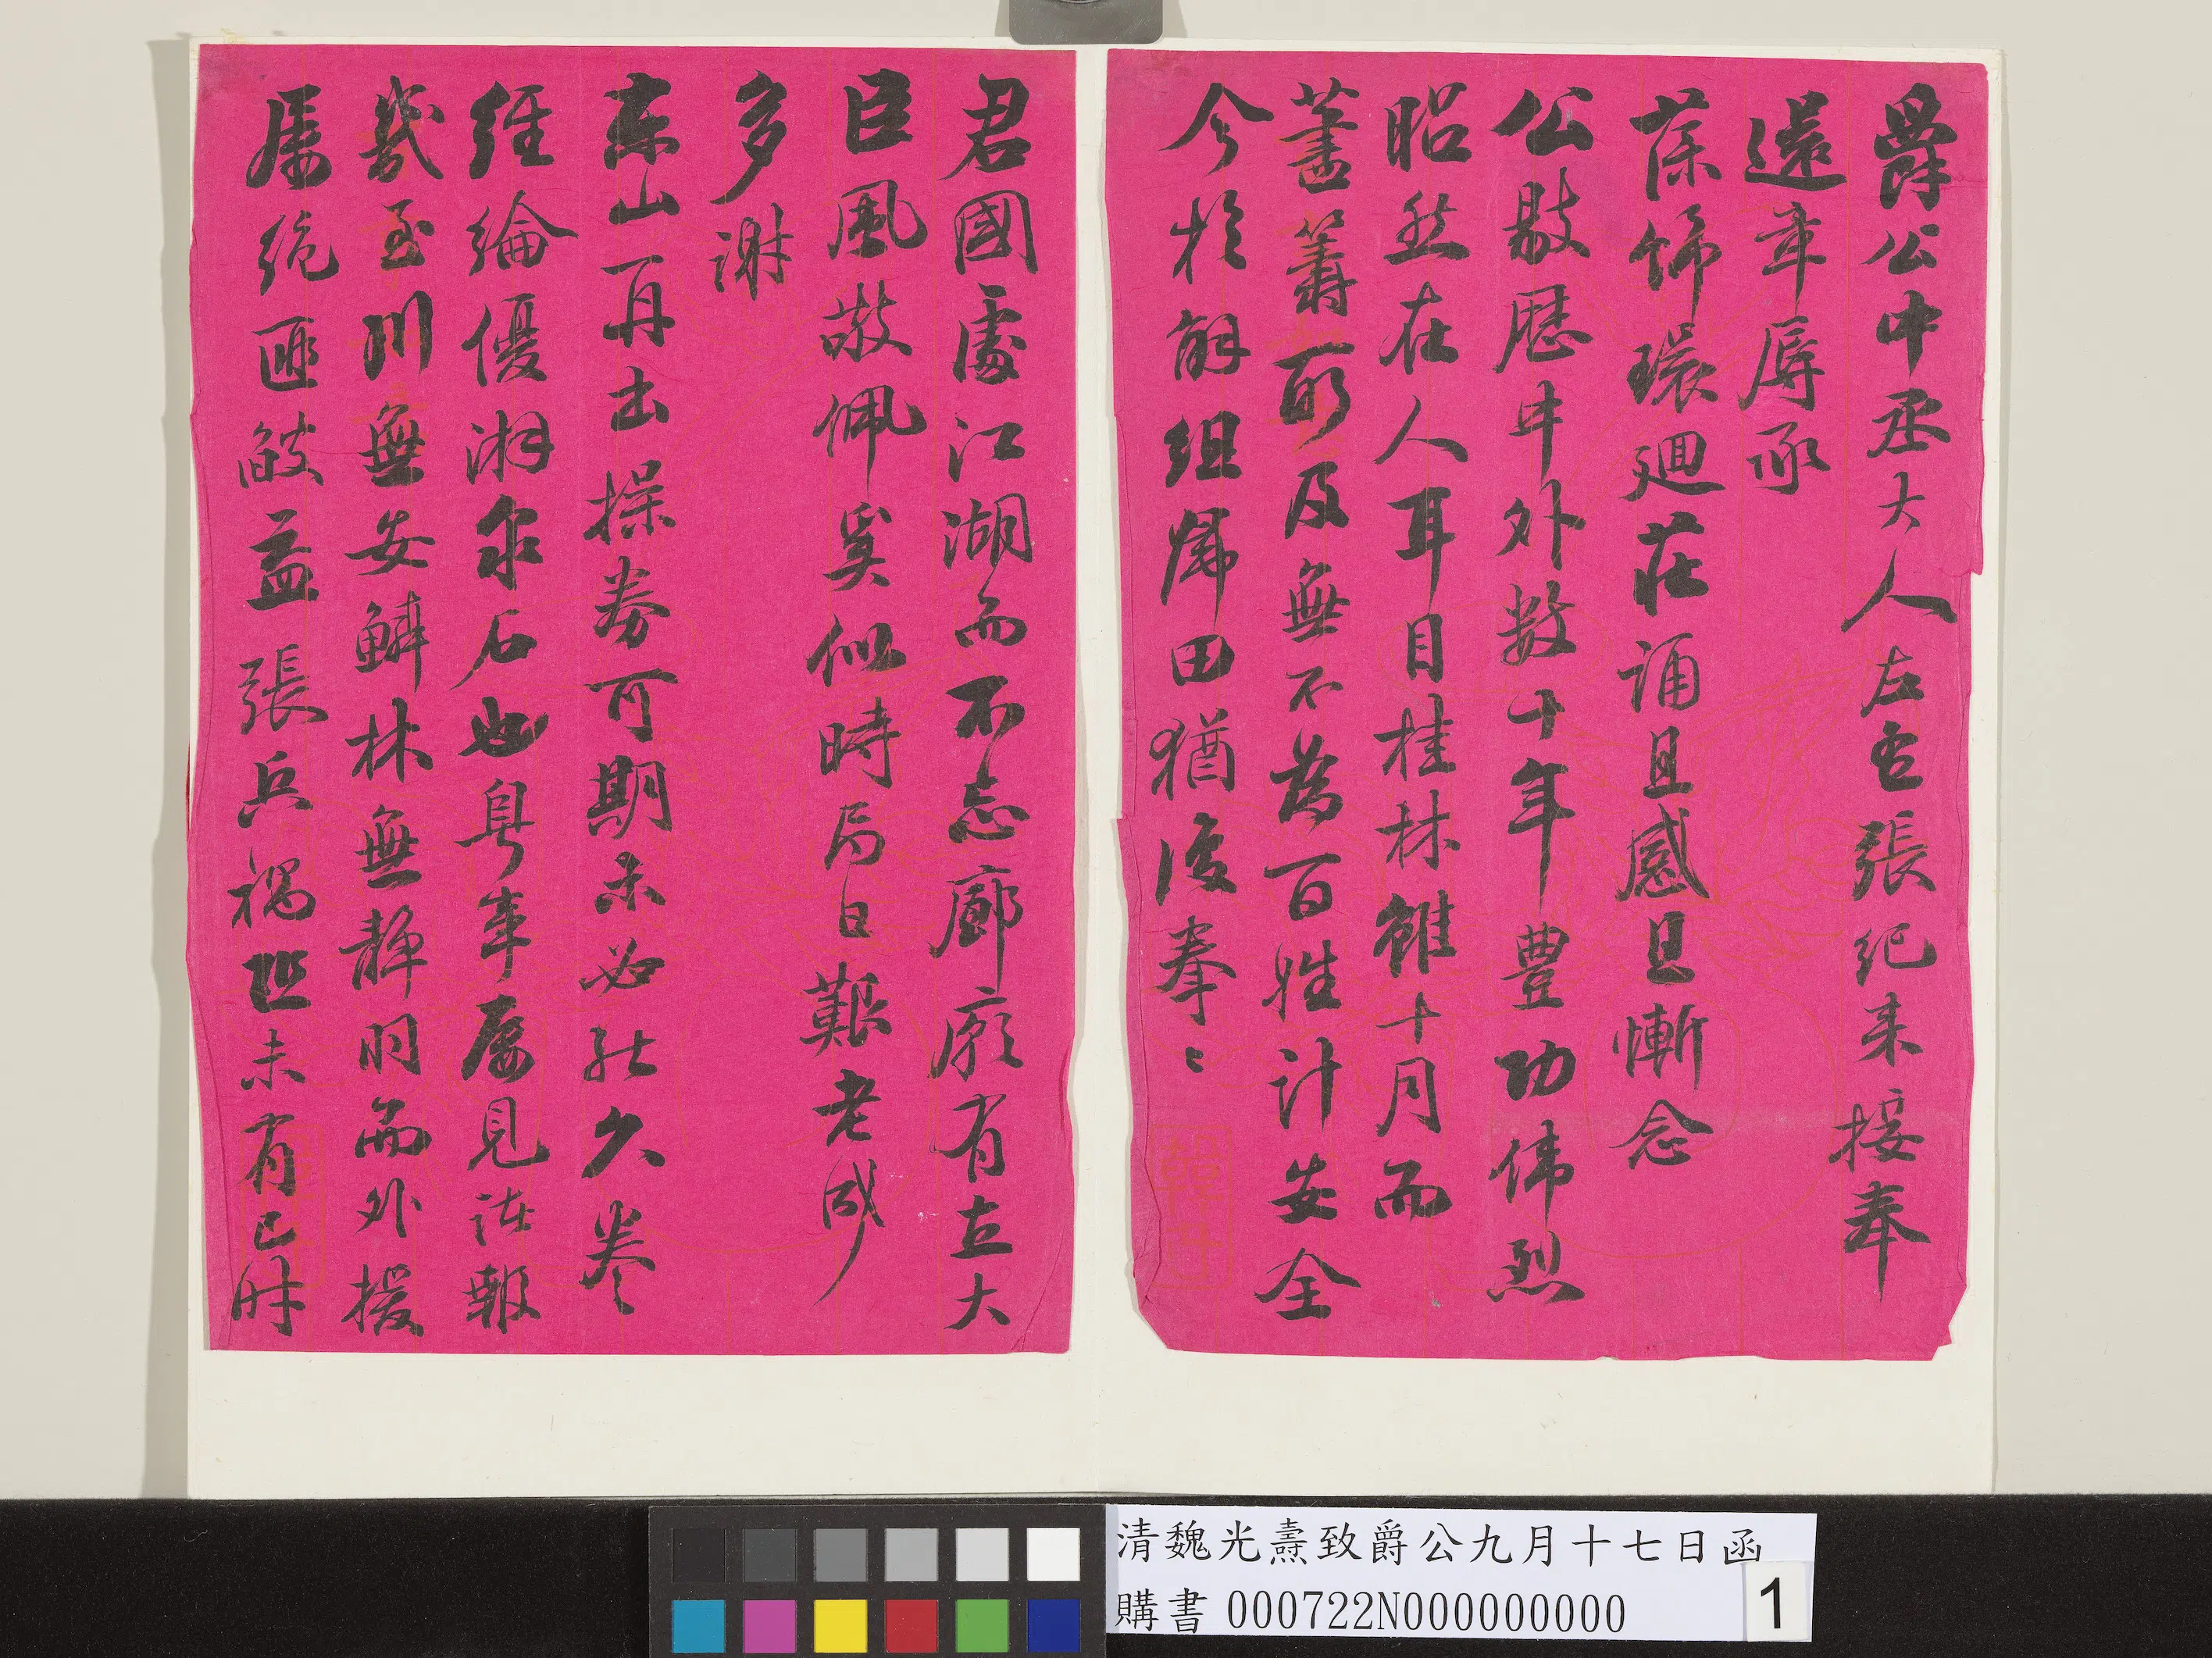 爵公中丞大人左右張紀来接奉
還章辱承
葆飾環廻莊誦且感且慚念
公敭歷中外數十年豐功偉烈
昭然在人耳目桂林雖十月而
蓋籌所及無不為百姓計安全
今於解組歸田猶復拳拳
君國處江湖而不忘廊廟有古大
臣風敬佩奚似時局日艱老成
多謝
東山再出操券可期未必能久卷
經綸優游泉石也粤事屢見決報
幾至川無安鱗林無靜羽而外援
屢絶匪燄益張兵禍正未有已時
清魏光燾致爵公九月十七日函
購書 000722N000000000
1